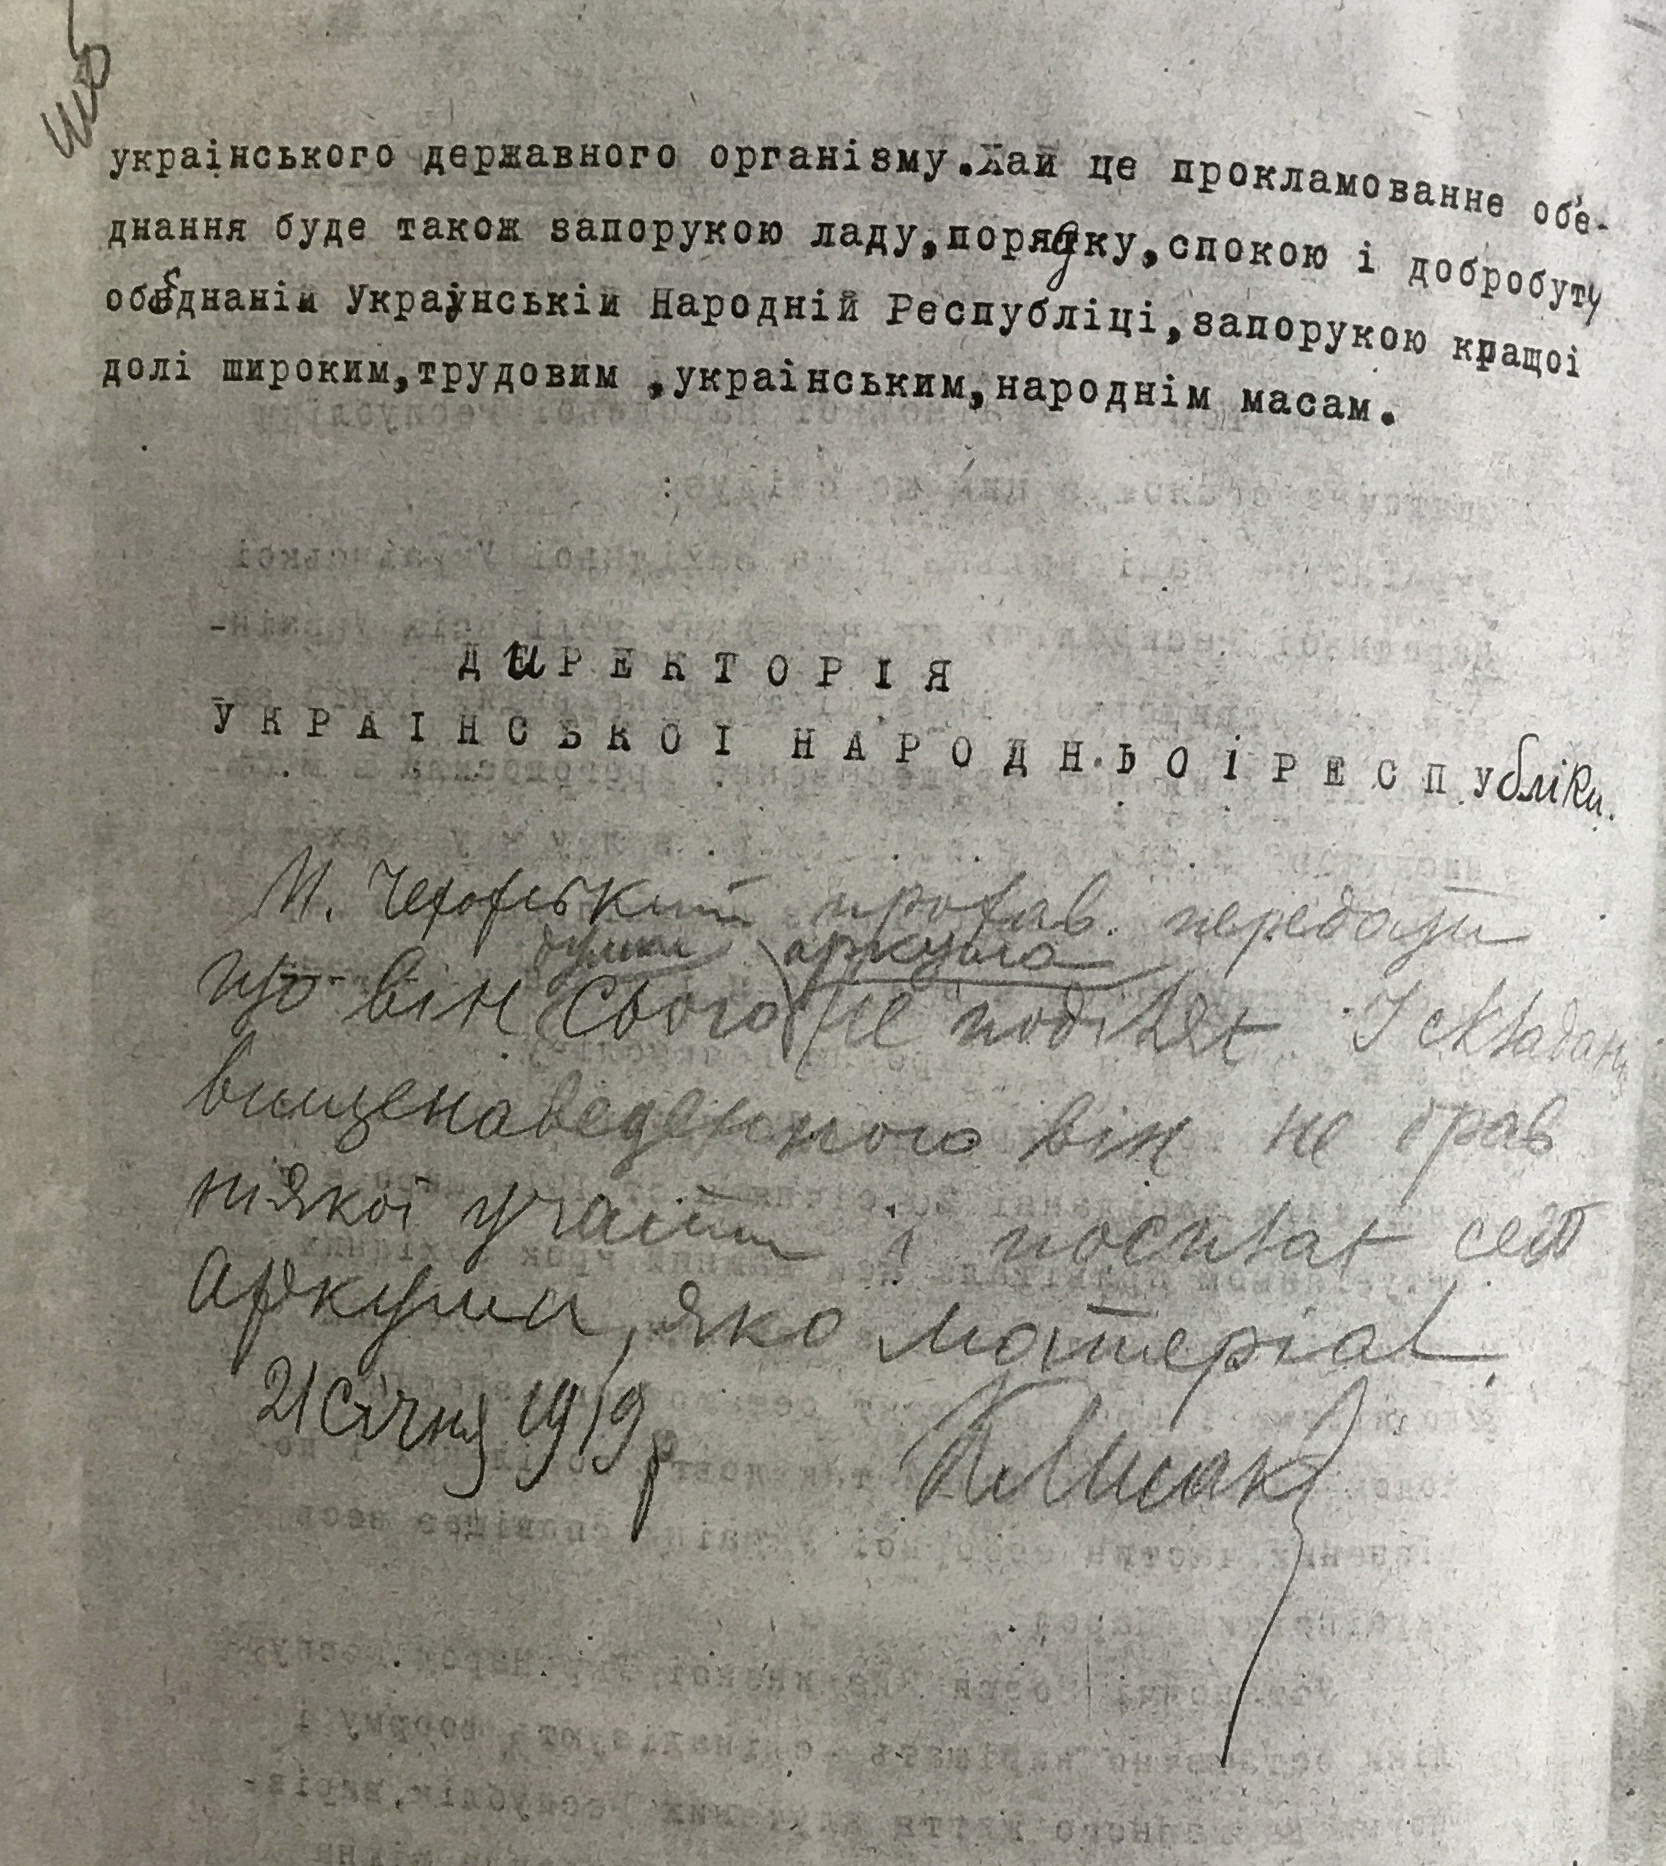 що
українського державного організму.Хай це прокламованне обʼє-
днання буде також запорукою ладу,порядку,спокою і добробуту
обєднаній Українській Народній Республіці,запорукою кращоі
долі широким,трудовим ,украінським,народнім масам.
ДИРЕКТОРІЯ
УКРАІНСЬКОІ НАРОДНЬОІ РЕСПУбліки.
М. передати
думки аркуша
що він свого не поділяє І складанн
вищенаведеного він не брав
ніякої участи і посилає сей
аркуша, яко матеріал.
21 січня 1919 р